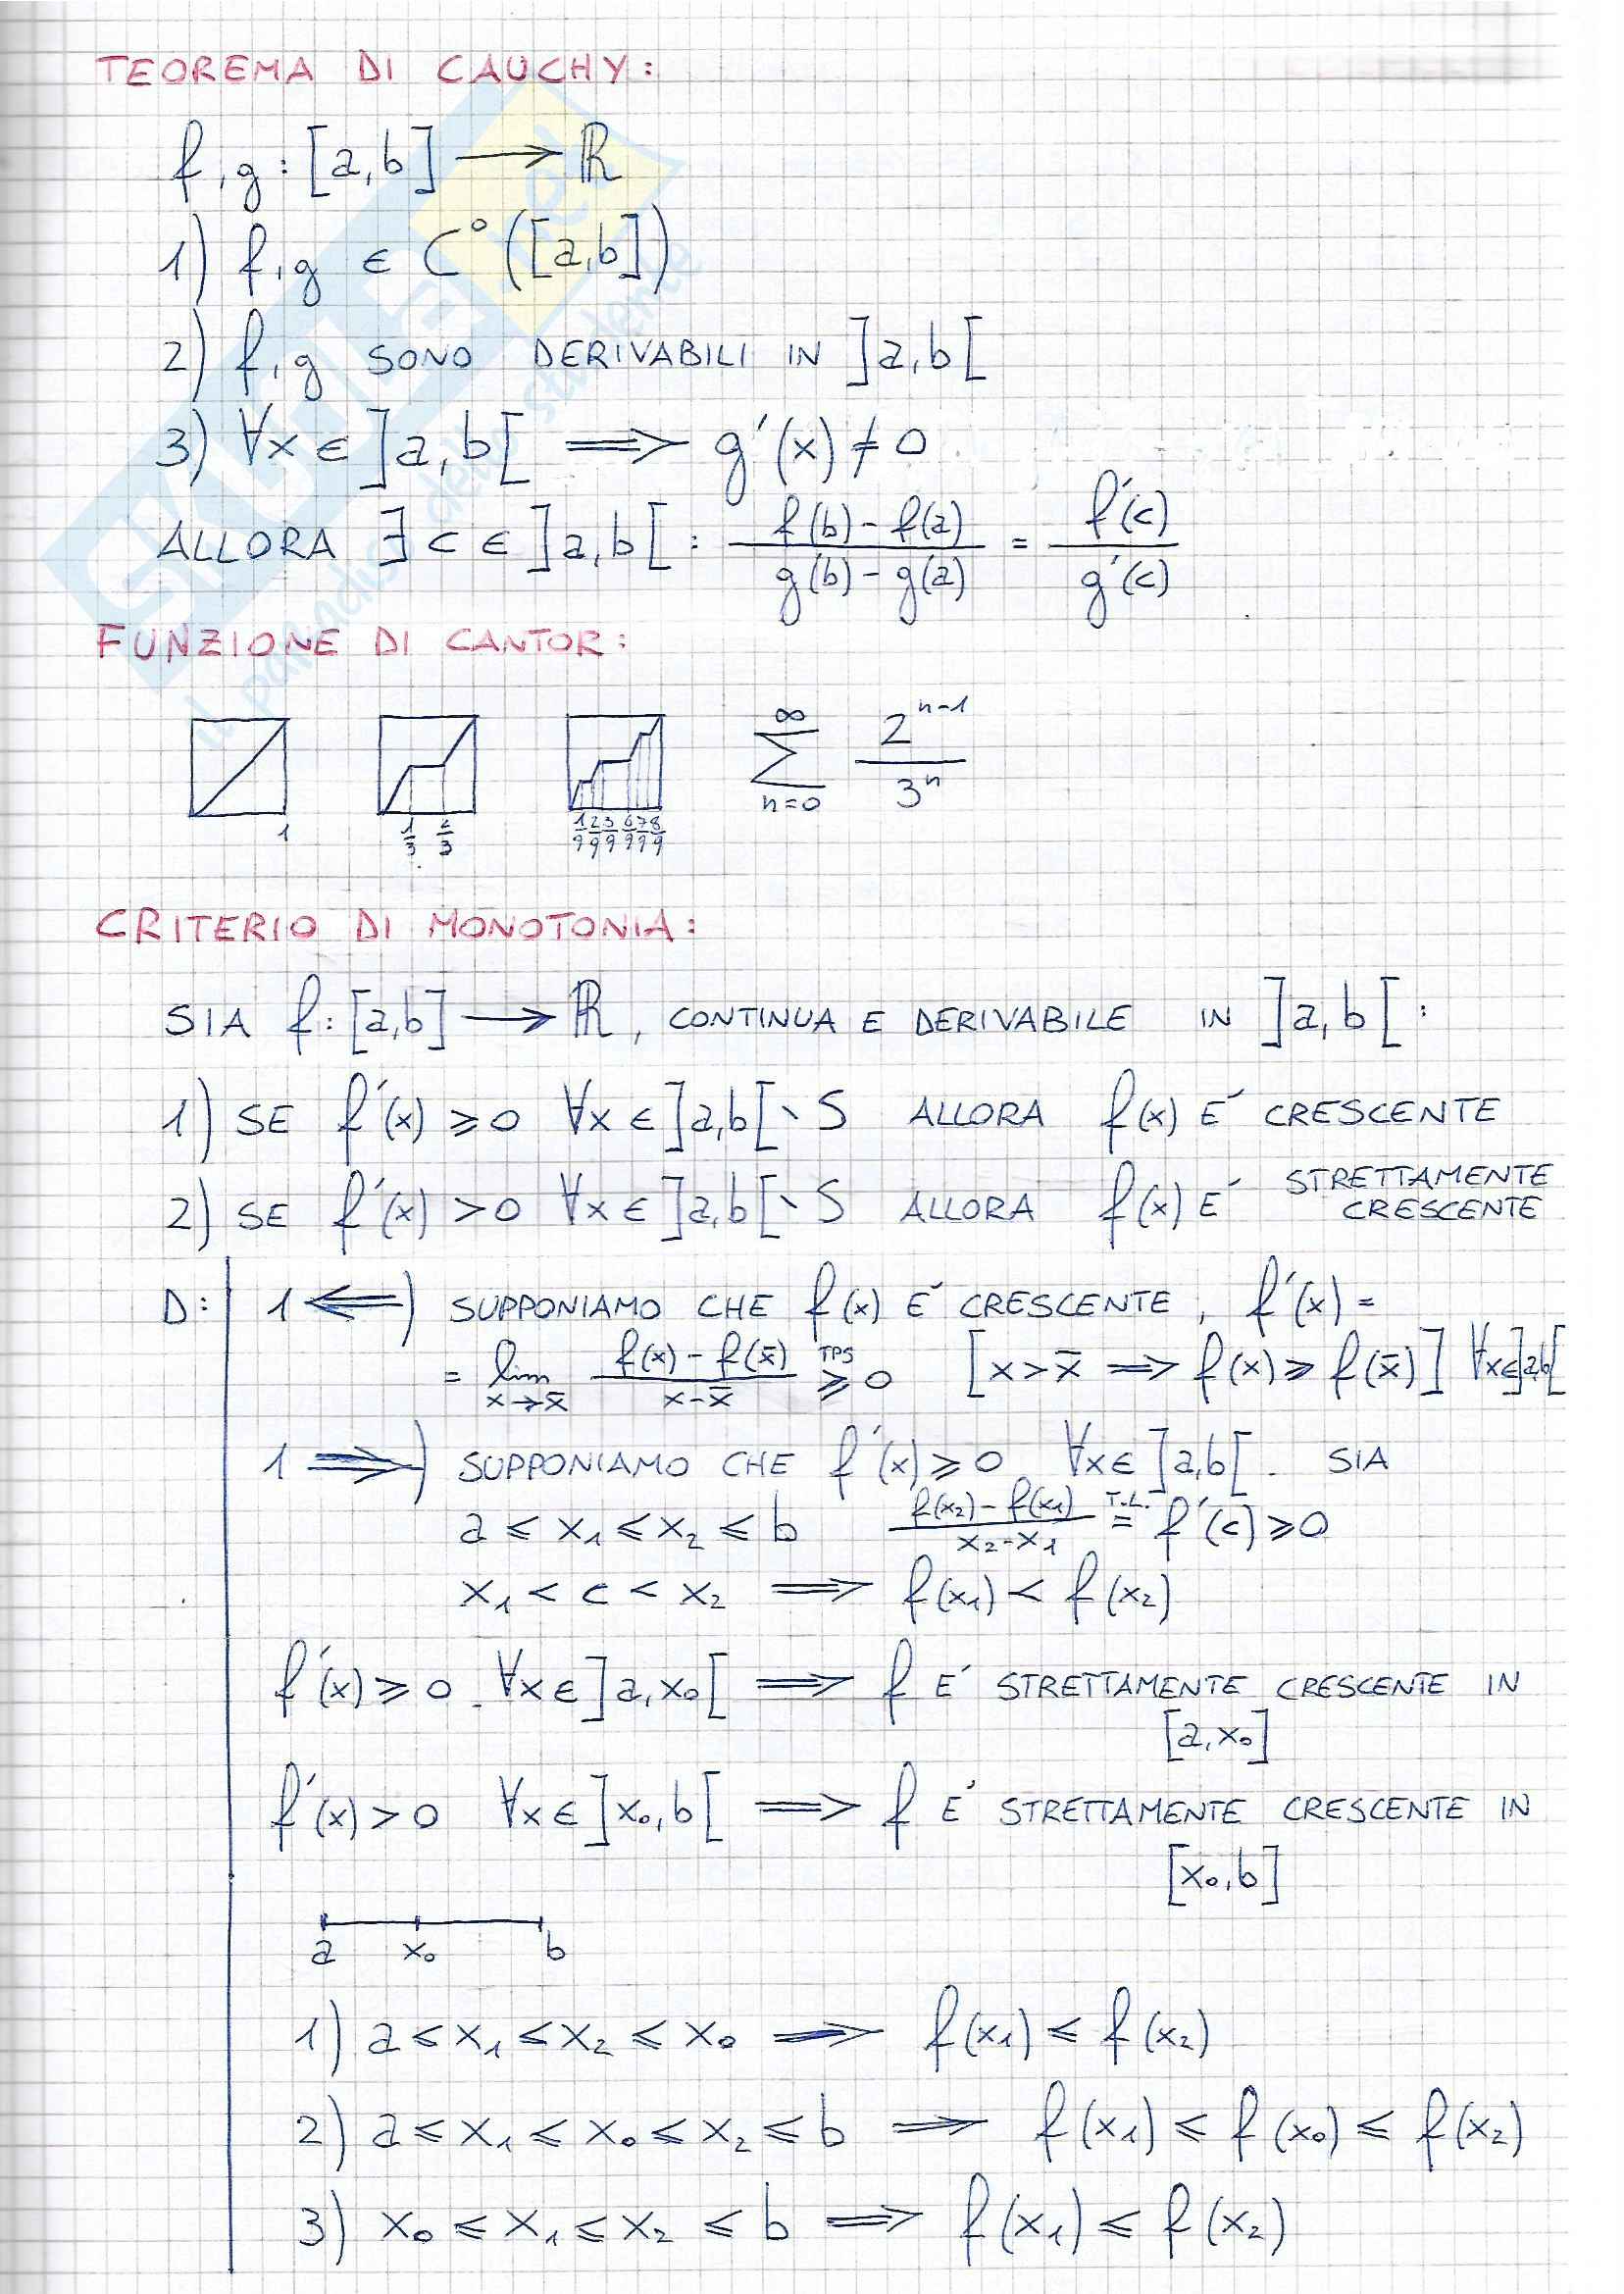 TEOREMA DI CAUCHY:
f,g: [a,b] ⟶ ℝ
1) f,g ∈ C°([a,b])
2) f,g SONO DERIVABILI IN ]a,b[
3) ∀x ∈ ]a,b[ ⟹ g'(x) ≠ 0
ALLORA ∃ c ∈ ]a,b[ : (f(b) - f(a))/(g(b) - g(a)) = f'(c)/g'(c)
FUNZIONE DI CANTOR:
1 1/3 2/3 1/9 2/9 3/9 6/9 7/9 8/9 ∑_{n=0}^{∞} 2^{n-1}/3^n
CRITERIO DI MONOTONIA:
SIA f: [a,b] ⟶ ℝ, CONTINUA E DERIVABILE IN ]a,b[ :
1) SE f'(x) ⩾ 0 ∀x ∈ ]a,b[ \ S ALLORA f(x) E' CRESCENTE
2) SE f'(x) > 0 ∀x ∈ ]a,b[ \ S ALLORA f(x) E' STRETTAMENTE CRESCENTE
D: 1 ⟸) SUPPONIAMO CHE f(x) E' CRESCENTE, f'(x) =
= lim_{x→x̄} (f(x) - f(x̄))/(x - x̄) ⩾^{TPS} 0 [x > x̄ ⟹ f(x) ⩾ f(x̄)] ∀x∈]a,b[
1 ⟹) SUPPONIAMO CHE f'(x) ⩾ 0 ∀x ∈ ]a,b[. SIA
a ⩽ x₁ ⩽ x₂ ⩽ b (f(x₂) - f(x₁))/(x₂ - x₁) =^{T.L.} f'(c) ⩾ 0
x₁ < c < x₂ ⟹ f(x₁) < f(x₂)
f'(x) ⩾ 0 . ∀x ∈ ]a,x₀[ ⟹ f E' STRETTAMENTE CRESCENTE IN
[a,x₀]
f'(x) > 0 ∀x ∈ ]x₀,b[ ⟹ f E' STRETTAMENTE CRESCENTE IN
[x₀,b]
a x₀ b
1) a ⩽ x₁ ⩽ x₂ ⩽ x₀ ⟹ f(x₁) ⩽ f(x₂)
2) a ⩽ x₁ ⩽ x₀ ⩽ x₂ ⩽ b ⟹ f(x₁) ⩽ f(x₀) ⩽ f(x₂)
3) x₀ ⩽ x₁ ⩽ x₂ ⩽ b ⟹ f(x₁) ⩽ f(x₂)
SKUola.net
il paradiso dello studente